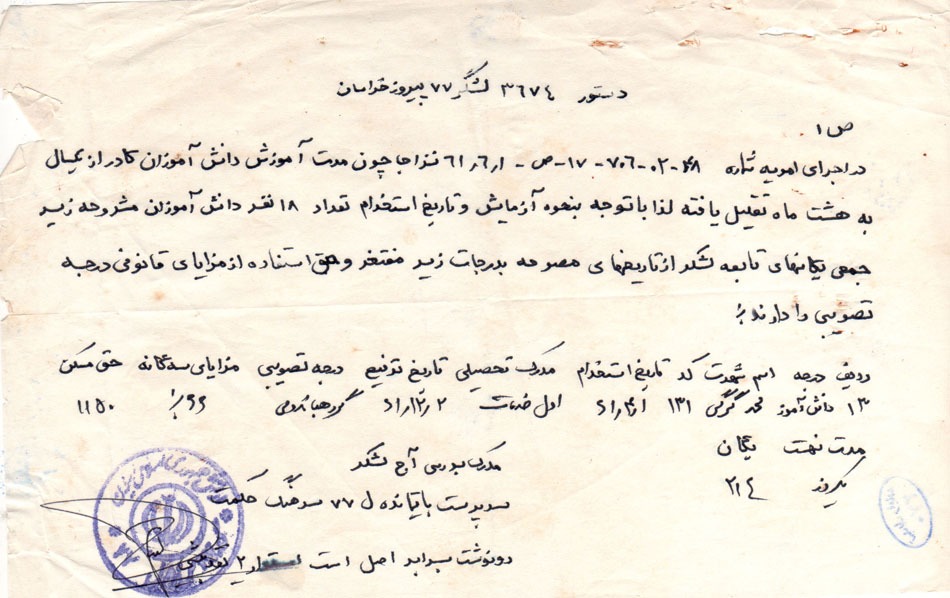 دستور ۳۶۷۴ لشگر ۷۷ پیروز خراسان
ص ۱
در اجرای امریه شماره ۴۸-۰۲-۷۰۶-۱۷-ص-۶۱٫۶٫۱ نزاجا چون مدت آموزش دانش آموزان کادر از یکسال
به هشت ماه تقلیل یافته لذا با توجه بنحوه آزمایش و تاریخ استخدام تعداد ۱۸ نفر دانش آموزان مشروحه زیر
جمعی یکانهای تابعه لشکر از تاریخهای مصوبه بدرجات زیر مفتخر و حق استفاده از مزایای قانونی درجه
تصویبی را دارند:
ردیف درجه اسم شهرت کد تاریخ استخدام مدرک تحصیلی تاریخ ترفیع درجه تصویبی مزایای سه گانه حق مسکن
۱۳ دانش آموز محمد گرگی ۱۳۱ اول ۲ گروهبان دومی ۶۶٪ ۱۱۵۰
مدت یکان
یکروز ۲۱۴
لشکر
سرپرست باقیمانده ل ۷۷ سرهنگ حکمت
رونوشت برابر اصل است ۲